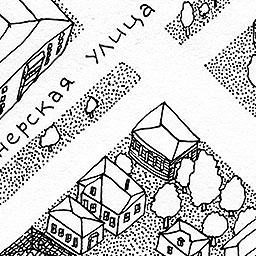 нерская улица